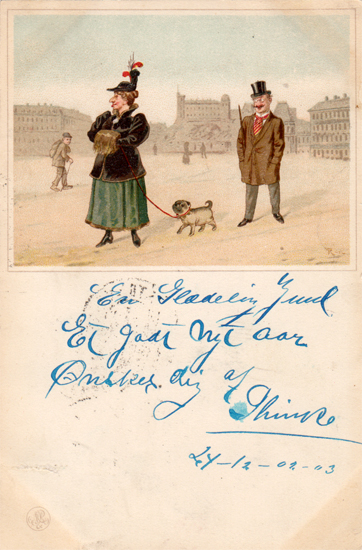 En Glædelig Juul
Et godt Nyt aar
Ønskes dig af
24-12-02-03